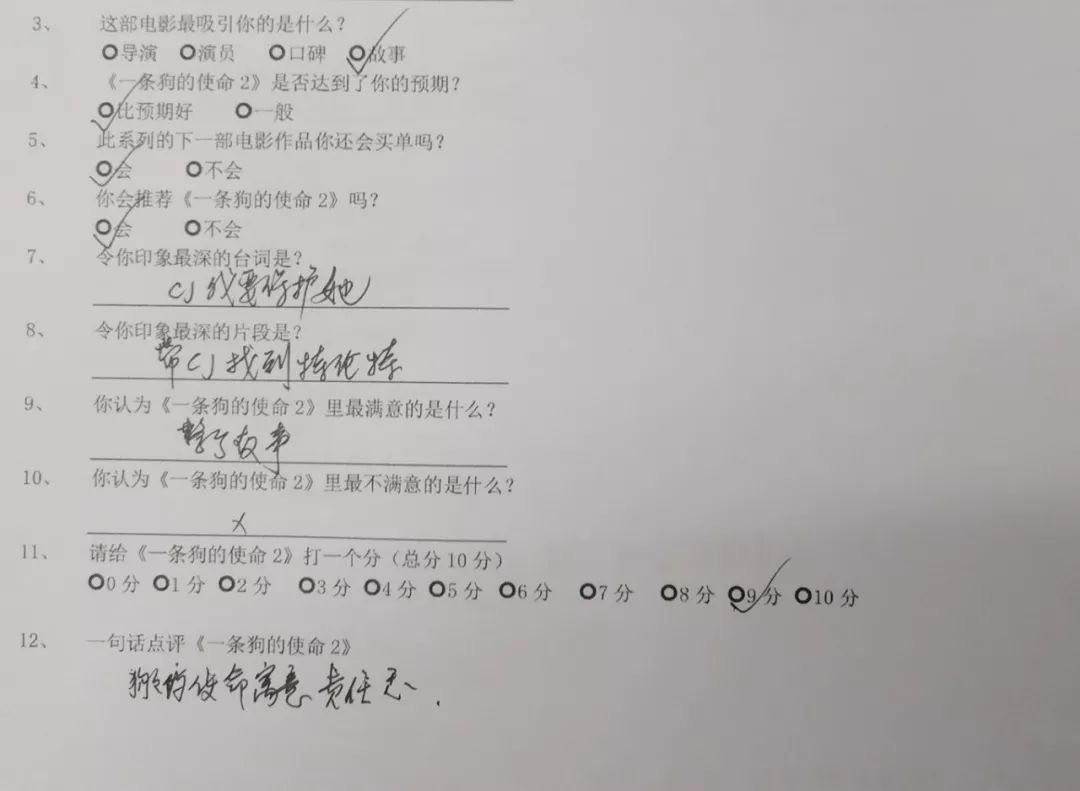 3、 这部电影最吸引你的是什么？
导演 演员 口碑 故事
4、 《一条狗的使命 2》是否达到了你的预期？
比预期好 一般
5、 此系列的下一部电影作品你还会买单吗？
会 不会
6、 你会推荐《一条狗的使命 2》吗？
会 不会
7、 令你印象最深的台词是？
CJ 我要保护她
8、 令你印象最深的片段是？
带CJ找到特伦特
9、 你认为《一条狗的使命 2》里最满意的是什么？
整个故事
10、 你认为《一条狗的使命 2》里最不满意的是什么？
X
11、 请给《一条狗的使命 2》打一个分（总分 10 分）
0 分 1 分 2 分 3 分 4 分 5 分 6 分 7 分 8 分 9 分 10 分
12、 一句话点评《一条狗的使命 2》
狗的使命寓意责任心.